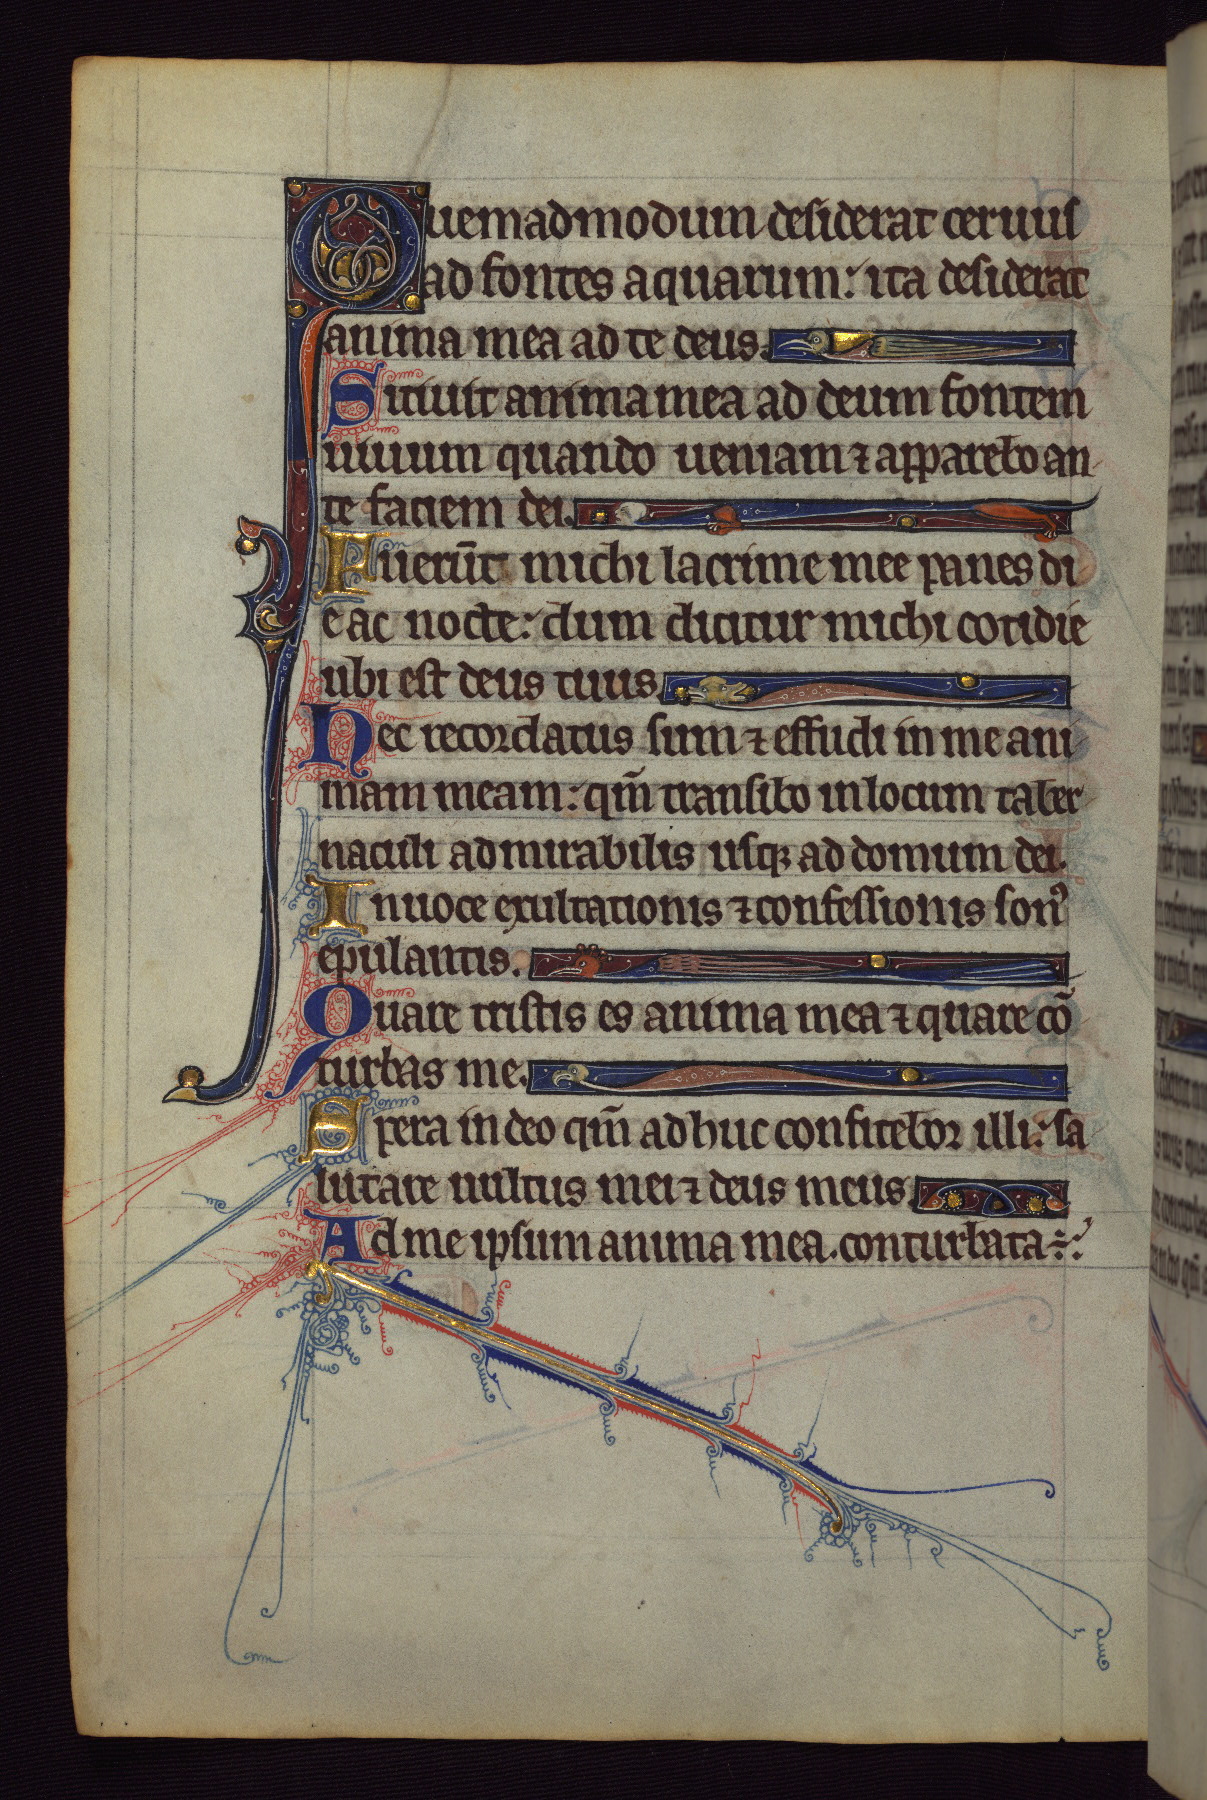 Quemadmodum desiderat ceruus
ad fontes aquarum: ita desiderat
anima mea ad te deus.
Sitiuit anima mea ad deum fontem
uiuum quando ueniam ⁊ apparebo an
te faciem dei.
Fuerūt michi lacrime mee panes di
e ac nocte: dum dicitur michi cotidie
ubi est deus tuus.
Hec recordatus sum ⁊ effudi in me ani
mam meam: qm̄ transibo in locum taber
naculi admirabilis usqꝫ ad domum dei.
In uoce exultationis ⁊ confessionis sonꝰ
epulantis.
Quare tristis es anima mea ⁊ quare cō
turbas me.
Spera in deo qm̄ adhuc confitebor illi: sa
lutare uultus mei ⁊ deus meus
Ad me ipsum anima mea. conturbata